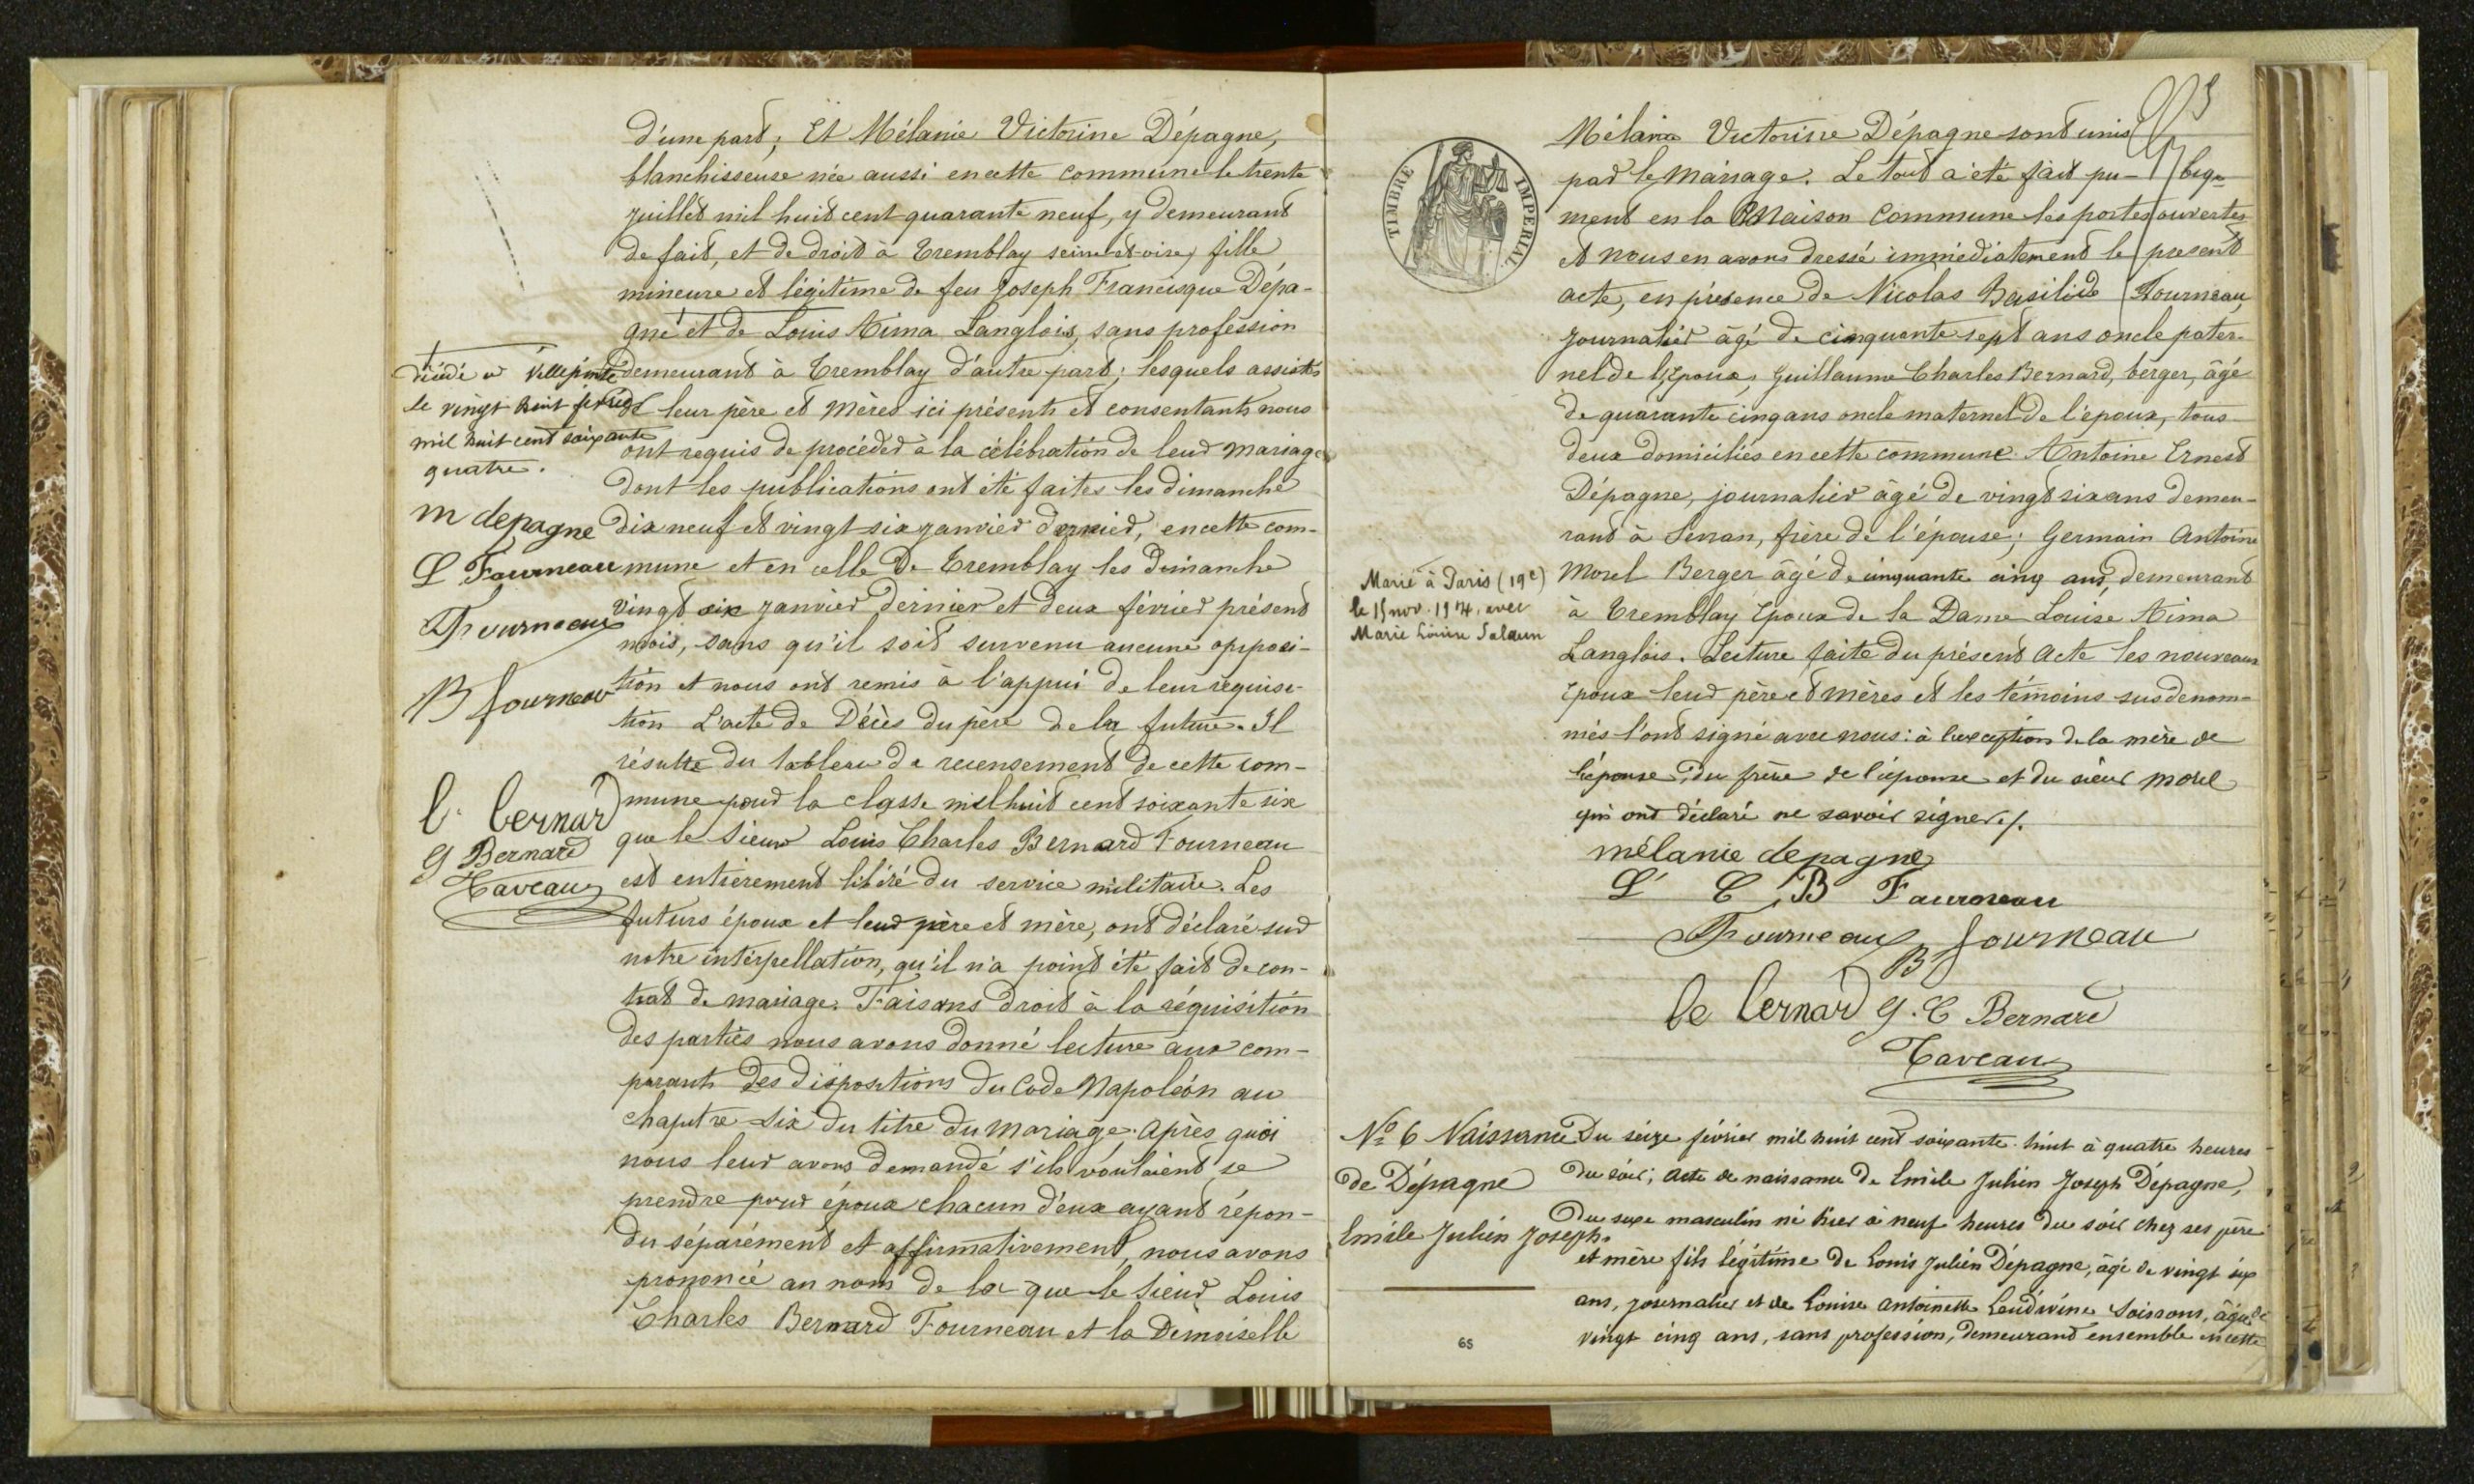 d'une part; Et Mélanie Victorine Dépagne,
blanchisseuse née aussi en cette commune le trente
juillet mil huit cent quarante neuf, y demeurant
de fait, et de droit à Tremblay seine-et-oise, fille
mineure et légitime de feu Joseph Francisque Dépa-
gne et de Louis Aima Langlois, sans profession
demeurant à Tremblay d'autre part; lesquels assistés
de leur père et mères ici présents et consentants nous
ont requis de procéder à la célébration de leur mariage
dont les publications ont été faites les dimanche
dix neuf et vingt six janvier dernier, en cette com-
mune et en celle de Tremblay les dimanche
vingt six janvier dernier et deux février présent
mois, sans qu'il soit survenu aucune opposi-
tion et nous ont remis à l'appui de leur réquisi-
tion L'acte de Décès du père de la future. Il
résulte du tableau de recensement de cette com-
mune pour la classe mil huit cent soixante six
que le Sieur Louis Charles Bernard Fourneau
est entièrement libéré du service militaire. Les
futurs époux et leur père et mère, ont déclaré sur
notre interpellation, qu'il n'a point été fait de con-
trat de mariage. Faisans droit à la réquisition
des parties nous avons donné lecture aux com-
parants des dispositions du Code Napoléon au
chapitre six du titre du mariage. Après quoi
nous leur avons demandé s'ils voulaient se
prendre pour époux chacun d'eux ayant répon-
du séparément et affirmativement, nous avons
prononcé an nom de la que le Sieur Louis
Charles Bernard Fourneau et la Demoiselle
décédé à Villepinte
le vingt huit février
mil huit cent soixante
quatre.
m depagne
L Fourneau
Fourneau
B fourneau
C. bernard
G Bernard
Taveau
TIMBRE IMPERIAL
Mélanie Victorine Dépagne sont unis
par le Mariage. Le tout a été fait pu-
ment en la Maison Commune les portes ouvertes
et nous en avons dressé immédiatement le présent
acte, en présence de Nicolas Basilide Fourneau,
journalier âgé de cinquante sept ans oncle pater-
nel de l'Epoux, Guillaume Charles Bernard, berger, âgé
de quarante cinq ans oncle maternel de l'époux, tous
deux domiciliés en cette commune. Antoine Ernest
Dépagne, journalier âgé de vingt six ans demeu-
rant à Sevran, frère de l'épouse; Germain Antoine
Morel Berger âgé de cinquante cinq ans, demeurant
à Tremblay Epoux de la Dame Louise Aima
Langlois. Lecture faite du présent Acte les nouveaux
époux leur père et mères et les témoins susdenom-
més l'ont signé avec nous: à l'exception de la mère de
l'épouse, du frère de l'épouse et du sieur Morel
qui ont déclaré ne savoir signer ./.
mélanie depagne
L C B Fourneau
Fourneau fourneau
B
Ce bernard G. C Bernard
Taveau
Marié à Paris (19e)
avec
Marie Louise Salaun
No 6 Naissance
de Dépagne
Emile Julien Joseph.
Du seize février mil huit cent soixante huit à quatre heures
du soir; acte de naissance de Emile Julien Joseph Dépagne,
du sexe masculin né hier à neuf heures du soir chez ses père
et mère fils légitime de Louis Julien Dépagne, âgé de vingt six
ans, journalier et de Louise Antoinette Leudivine Soissons, âgée de
vingt cinq ans, sans profession, demeurant ensemble en cette
65